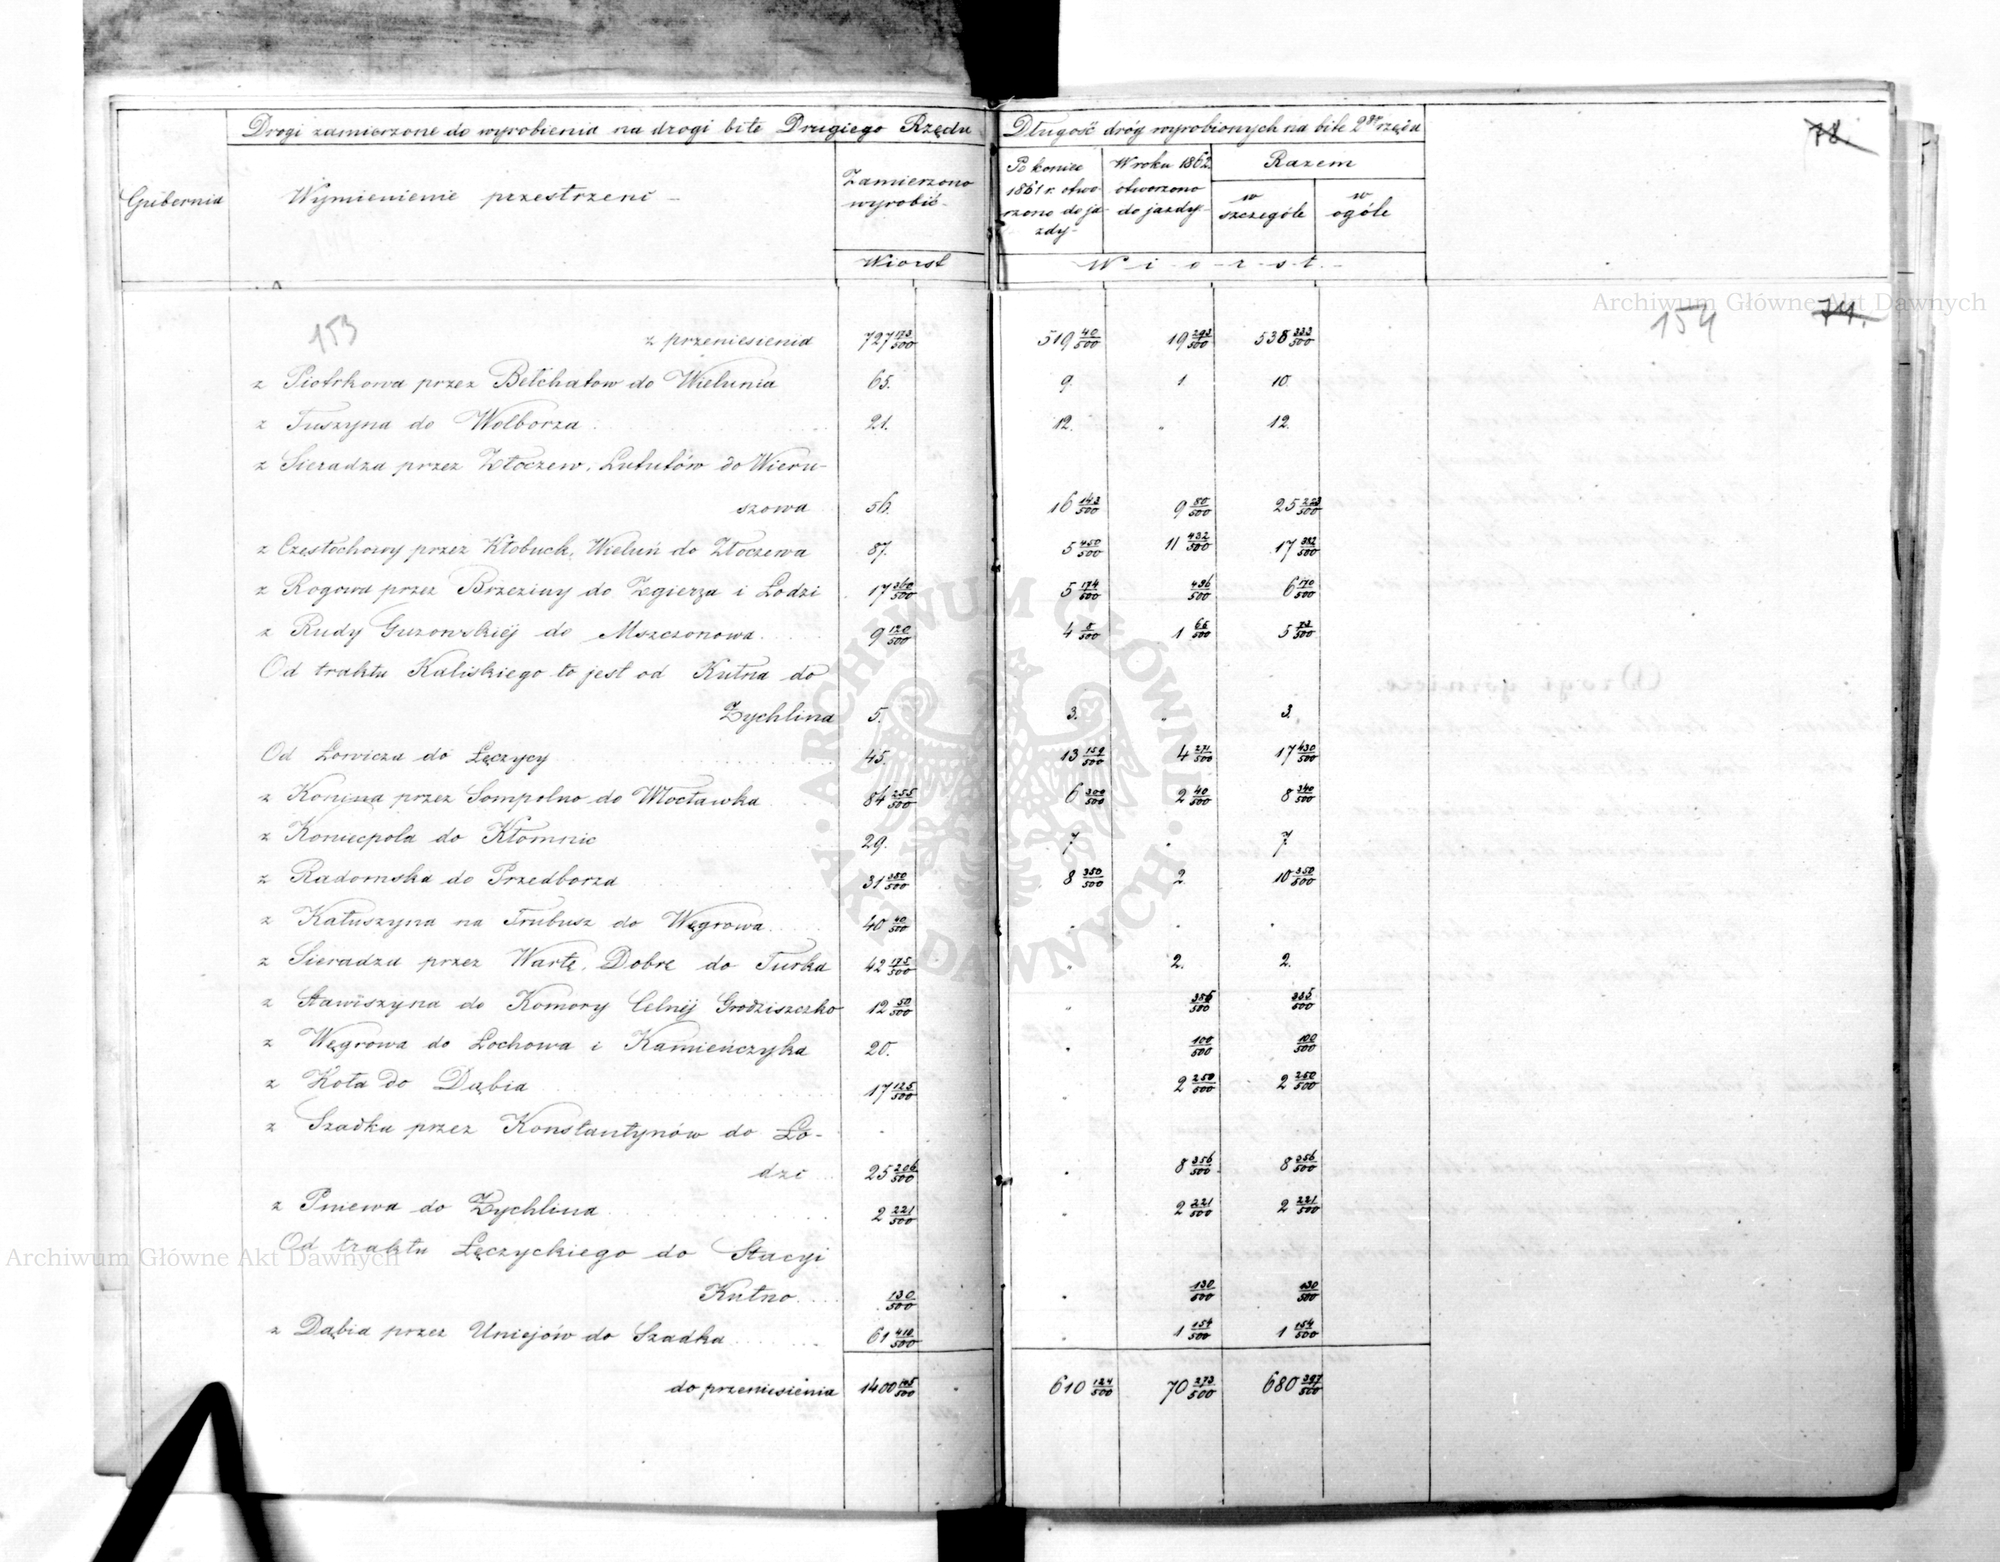 Drogi zamierzone do wyrobienia na drogi bite Drugiego Rzędu
Długość dróg wyrobionych na bite 2go rzędu
78.
Gubernia
Wymienienie przestrzeni
Zamierzono wyrobić
Po koniec 1861 r. otworzono do jazdy
W roku 1862 otworzono do jazdy
Razem
w szczególe
w ogóle
Wiorst
Wiorst
Archiwum Główne Akt Dawnych
153
154
74.
z przeniesienia 727 173/500 519 40/500 19 293/500 538 333/500
z Piotrkowa przez Bełchatow do Wielunia 65. 9. 1. 10.
z Tuszyna do Wolborza 21. 12. " 12.
z Sieradza przez Złoczew, Lututów do Wieru-
szowa 56. 16 143/500 9 80/500 25 223/500
z Częstochowy przez Kłobuck, Wieluń do Złoczewa 87. 5 450/500 11 432/500 17 382/500
z Rogowa przez Brzeziny do Zgierza i Łodzi 17 360/500 5 174/500 496/500 6 170/500
z Rudy Guzowskiéj do Mszczonowa 9 120/500 4 8/500 1 65/500 5 73/500
Od traktu Kaliskiego to jest od Kutna do
Żychlina 5. 3. " 3.
Od Łowicza do Łęczycy 45. 13 159/500 4 271/500 17 430/500
z Konina przez Sompolno do Włocławka 84 255/500 6 300/500 2 40/500 8 340/500
z Koniecpola do Kłomnic 29. 7 . 7.
z Radomska do Przedborza 31 350/500 8 350/500 2. 10 350/500
z Kałuszyna na Trubusz do Węgrowa 40 40/500 . . .
z Sieradza przez Wartę, Dobrę do Turka 42 175/500 . 2. 2.
z Stawiszyna do Komory Celnéj Grodziszczko 12 50/500 . 355/500 335/500
z Węgrowa do Łochowa i Kamieńczyka 20. . 100/500 100/500
z Koła do Dąbia 17 125/500 . 2 250/500 2 250/500
z Szadku przez Konstantynów do Ło-
dzi 25 206/500 . 8 356/500 8 356/500
z Pniewa do Żychlina 2 221/500 . 2 221/500 2 221/500
Od traktu Łęczyckiego do Stacyi
Kutno 130/500 . 130/500 130/500
Archiwum Główne Akt Dawnych
z Dąbia przez Uniejów do Szadku 61 410/500 . 1 154/500 1 154/500
do przeniesienia 1400 115/500 610 124/500 70 273/500 680 397/500
ARCHIWUM GŁÓWNE AKT DAWNYCH